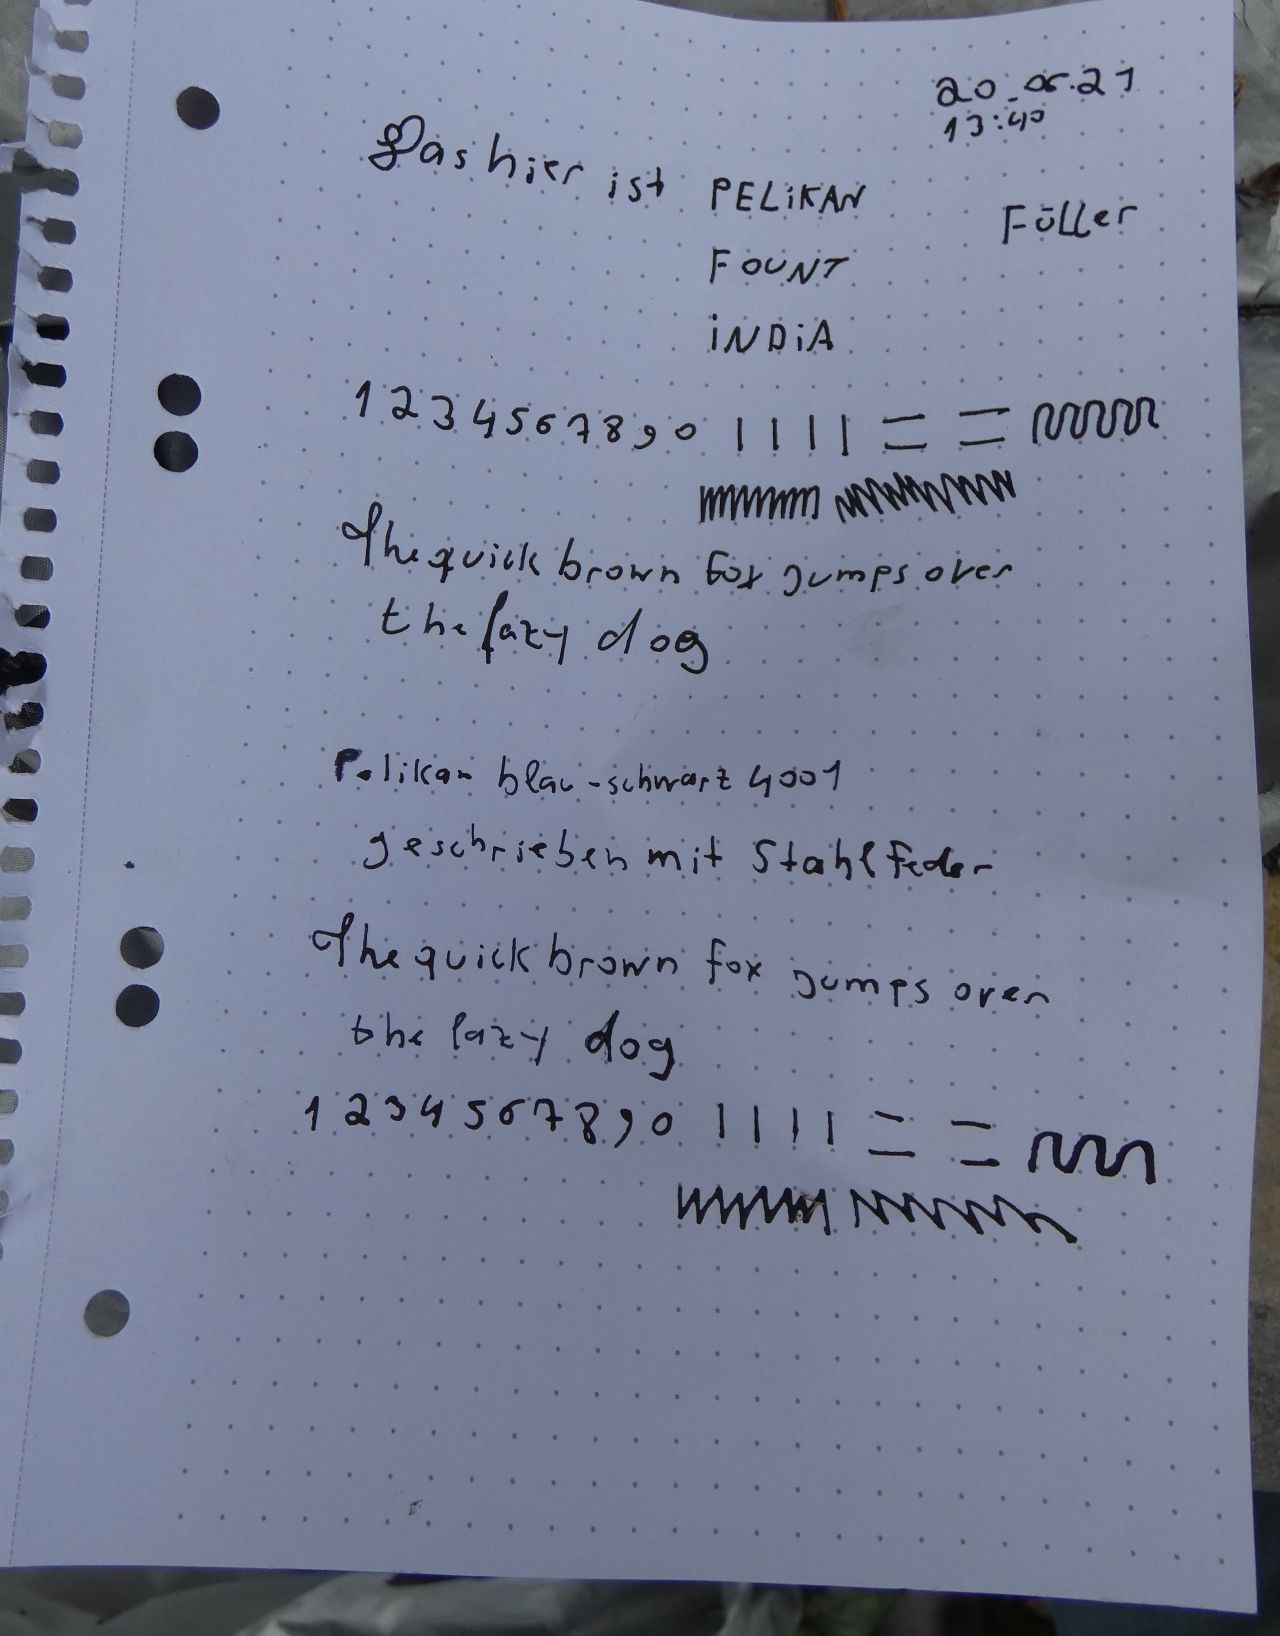 20.06.21
13:40
Das hier ist PELiKAN Füller
FOUNT
iNDiA
1 2 3 4 5 6 7 8 9 0
The quick brown fox jumps over
the lazy dog
Pelikan blau-schwarz 4001
geschrieben mit Stahlfeder
The quick brown fox jumps over
the lazy dog
1 2 3 4 5 6 7 8 9 0